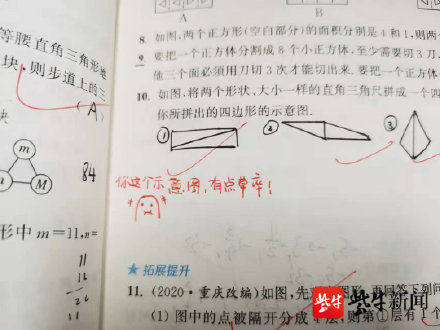 A
B
等腰直角三角形地
块,则步道上的三
(A)
块
m
n
M
84
形中m=11,n=
11
8. 如图,两个正方形(空白部分)的面积分别是4和1,则两
9. 要把一个正方体分割成8个小正方体,至少需要切3刀,
他三个面必须用刀切3次才能切出来.要把一个正方体
10. 如图,将两个形状、大小一样的直角三角尺拼成一个四
你所拼出的四边形的示意图.
① ② ③
你这个示意图,有点草率!
★ 拓展提升
11. (2020·重庆改编)如图,先 图形,再回答下列问
(1) 图中的点被隔开分成4层,则第①层有1个
紫牛新闻